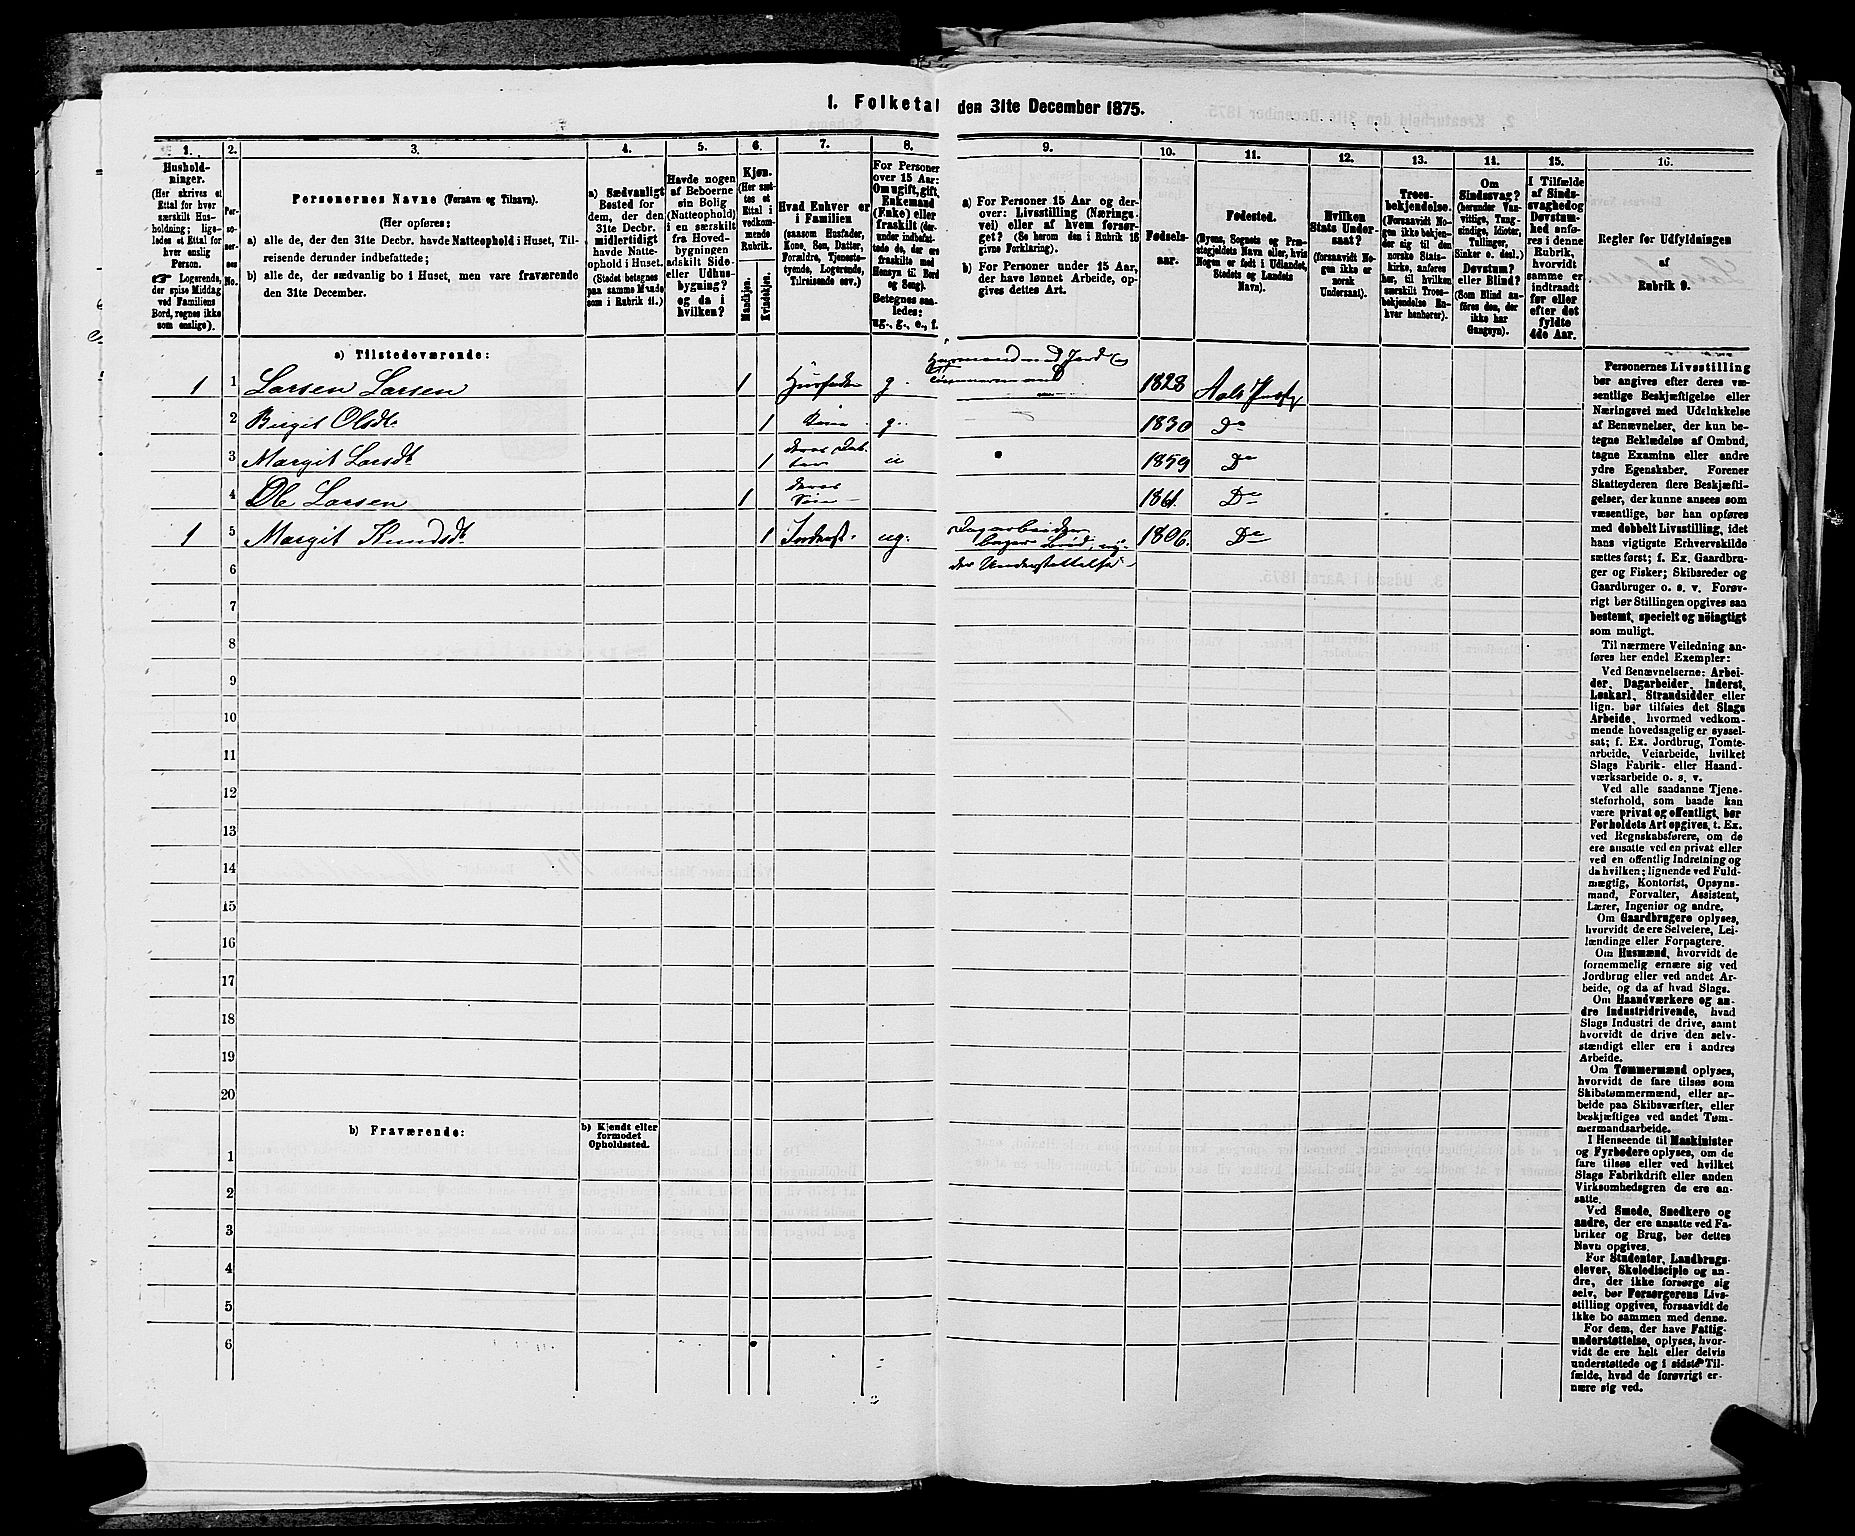 1. Folketal den 31te December 1875.
1.
Hushold-
ninger.
(Her skrives et
Ettal for hver
særskilt Hus-
holdning; lige-
ledes et Ettal for
hver enslig
Person.
☞ Logerende,
der spise Middag
ved Familiens
Bord, regnes ikke
som enslige).
2.
Per-
so-
ner-
nes
No.
3.
Personernes Navne (Fornavn og Tilnavn).
(Her opføres:
a) alle de, der den 31te Decbr. havde Natteophold i Huset, Til-
reisende derunder indbefattede;
b) alle de, der sædvanlig bo i Huset, men vare fraværende
den 31te December.
4.
a) Sædvanligt
Bosted for
dem, der den
31te Decbr.
midlertidigt
havde Natte-
ophold i Huset.
(Stedet betegnes
paa samme Maade
som i Rubrik 11.)
5.
Havde nogen
af Beboerne
sin Bolig
(Natteophold)
i en særskilt
fra Hoved-
bygningen
adskilt Side-
eller Udhus-
bygning?
og da i
hvilken?
6.
Kjøn.
(Her sæt-
tes et
Ettal i
vedkom-
mende
Rubrik.
Mandkjøn.
Kvindekjøn.
7.
Hvad Enhver er
i Familien
(saasom Husfader,
Kone, Søn, Datter,
Forældre, Tjeneste-
tyende, Logerende,
Tilreisende osv.)
8.
For Personer
over 15 Aar:
Om ugift, gift,
Enkemand
(Enke) eller
fraskilt (der-
under indbefat-
tede de, der ere
fraskilte med
Hensyn til Bord
og Seng).
Betegnes saa-
ledes:
ug., g., e., f.
9.
a) For Personer 15 Aar og der-
over: Livsstilling (Nærings-
vei) eller af hvem forsør-
get? (Se herom den i Rubrik 16
givne Forklaring).
b) For Personer under 15 Aar,
der have lønnet Arbeide, op-
gives dettes Art.
10.
Fødsels-
aar.
11.
Fødested.
(Byens, Sognets og Præ-
stegjeldets Navn eller, hvis
Nogen er født i Udlandet,
Stedets og Landets
Navn).
12.
Hvilken
Stats Under-
saat?
(forsaavidt No-
gen ikke er
norsk
Undersaat).
13.
Troes-
bekjendelse.
(Forsaavidt No-
gen ikke bekjen-
der sig til den
norske Stats-
kirke, anføres
her, til hvilken
særskilt Troes-
bekjendelse En-
hver henhører).
14.
Om
Sindssvag?
(herunder Van-
vittige, Tung-
sindige, Idioter,
Tullinger,
Sinker o. desl.)
Døvstum?
eller Blind?
(Som Blind an-
føres den, der
ikke har
Gangsyn).
15.
I Tilfælde
af Sinds-
svaghed og
Døvstum-
hed anfø-
res i denne
Rubrik,
hvorvidt
samme er
indtraadt
før eller
efter det
fyldte
4de Aar.
16.
Regler for Udfyldningen
af
Rubrik 9.
a) Tilstedeværende:
1 1 Larsen Larsen 1 Husfader g. Husmand med Jord og
Tømmermand 1828
2 Birgit Olsdt 1 Kone g. 1830 Do
3 Margit Larsdt 1 deres Dat-
ter u 1859 Do
4 Ole Larsen 1 deres
Søn 1861. Do
1 5 Margit Knudsdt 1 Inderst ug. 1806. Do
6
7
8
9
10
11
12
13
14
15
16
17
18
19
20
b) Fraværende:
b) Kjendt eller
formodet
Opholdssted.
1
2
3
4
5
6
Personernes Livsstilling
bør angives efter deres væ-
sentlige Beskjæftigelse eller
Næringsvei med Udelukkelse
af Benævnelser, der kun be-
tegne Beklædelse af Ombud,
tagne Examina eller andre
ydre Egenskaber. Forener
Skatteyderen flere Beskjæfti-
gelser, der kunne ansees som
væsentlige, bør han opføres
med dobbelt Livsstilling, idet
hans vigtigste Erhvervskilde
sættes først; f. Ex. Gaardbru-
ger og Fisker; Skibsreder og
Gaardbruger o. s. v. Forøv-
rigt bør Stillingen opgives saa
bestemt, specielt og nöiagtigt
som muligt.
Til nærmere Veiledning an-
føres her endel Exempler:
Ved Benævnelserne: Arbei-
der, Dagarbeider, Inderst,
Løskarl, Strandsidder eller
lign. bør tilføies det Slags
Arbeide, hvormed vedkom-
mende hovedsagelig er syssel-
sat; f. Ex. Jordbrug, Tomte-
arbeide, Veiarbeide, hvilket
Slags Fabrik- eller Haand-
værksarbeide o. s. v.
Ved alle saadanne Tjene-
steforhold, som baade kan
være privat og offentligt, bør
Forholdets Art opgives, t. Ex.
ved Regnskabsførere, om de
ere ansatte ved en privat eller
ved en offentlig Indretning og
da hvilken; lignende ved Fuld-
mægtig, Kontorist, Opsyns-
mand, Forvalter, Assistent,
Lærer, Ingeniør og andre.
Om Gaardbrugere oplyses,
hvorvidt de ere Selveiere, Lei-
lændinge eller Forpagtere.
Om Husmænd, hvorvidt de
fornemmelig ernære sig ved
Jordbrug eller ved andet Ar-
beide, og da af hvad Slags.
Om Haandværkere og an-
dre Industridrivende, hvad
Slags Industri de drive, samt
hvorvidt de drive den selv-
stændigt eller ere i andres
Arbeide.
Om Tømmermænd oplyses,
hvorvidt de fare tilsøs som
Skibstømmermænd, eller ar-
beide paa Skibsværfter, eller
beskjæftiges ved andet Tøm-
mermandsarbeide.
I Henseende til Maskinister
og Fyrbødere oplyses, om de
fare tilsøs eller ved hvilket
Slags Fabrikdrift eller anden
Virksomhedsgren de ere an-
satte.
Ved Smede, Snedkere og
andre, der ere ansatte ved Fa-
briker og Brug, bør dettes
Navn opgives.
For Studenter, Landbrugs-
elever, Skoledisciple og an-
dre, der ikke forsørge sig
selv, bør Forsørgerens Livs-
stilling opgives, forsaavidt de
ikke bo sammen med denne.
For dem, der have Fattig-
understøttelse, oplyses, hvor-
vidt de ere helt eller delvis
understøttede og i sidste Til-
fælde, hvad de forøvrigt er-
nære sig ved.